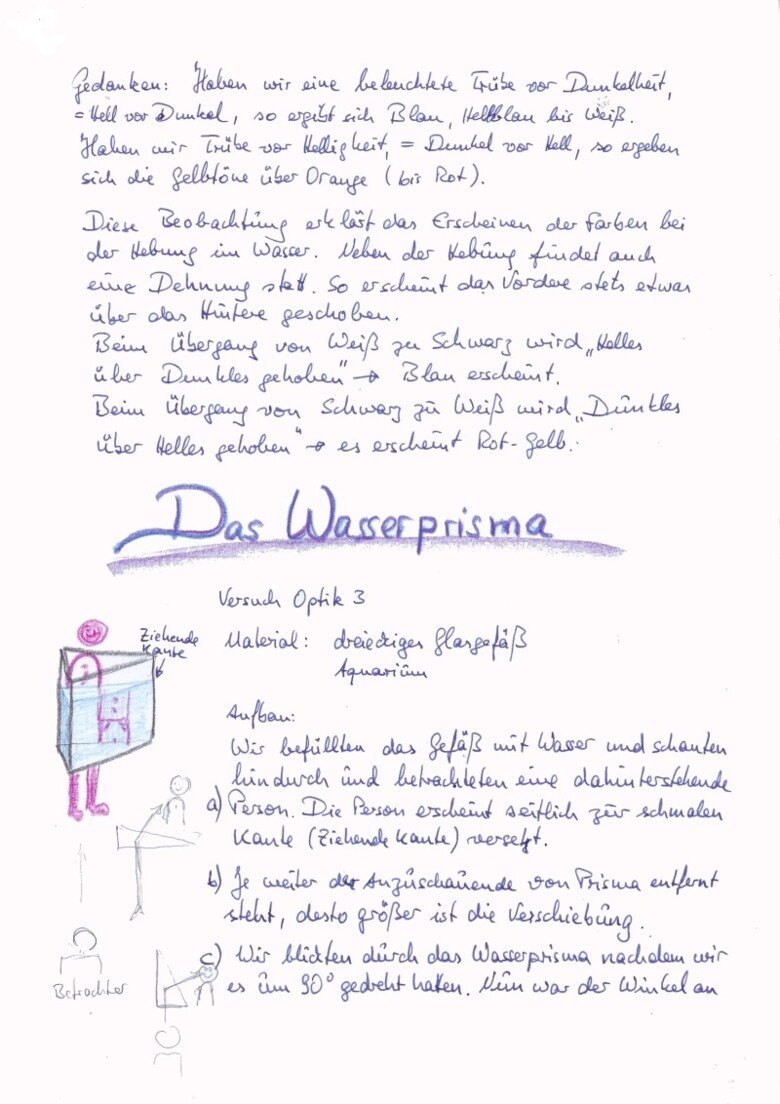 Gedanken: Haben wir eine beleuchtete Trübe vor Dunkelheit,
= Hell vor Dunkel, so ergibt sich Blau, Hellblau bis Weiß.
Haben wir Trübe vor Helligkeit, = Dunkel vor Hell, so ergeben
sich die Gelbtöne über Orange (bis Rot).
Diese Beobachtung erklärt das Erscheinen der Farben bei
der Hebung im Wasser. Neben der Hebung findet auch
eine Dehnung statt. So erscheint das Vordere stets etwas
über das Hintere geschoben.
Beim Übergang von Weiß zu Schwarz wird „Helles
über Dunkles gehoben" → Blau erscheint.
Beim Übergang von Schwarz zu Weiß wird „Dunkles
über Helles gehoben" → es erscheint Rot-Gelb.
Das Wasserprisma
Versuch Optik 3
Ziehende
Kante
Material: dreieckiges Glasgefäß
Aquarium
Aufbau:
Wir befüllten das Gefäß mit Wasser und schauten
hindurch und betrachteten eine dahinterstehende
a) Person. Die Person erscheint seitlich zur schmalen
Kante (Ziehende Kante) versetzt.
b) Je weiter der Anzuschauende von Prisma entfernt
steht, desto größer ist die Verschiebung.
c) Wir blickten durch das Wasserprisma nachdem wir
es um 90° gedreht hatten. Nun war der Winkel an
Betrachter